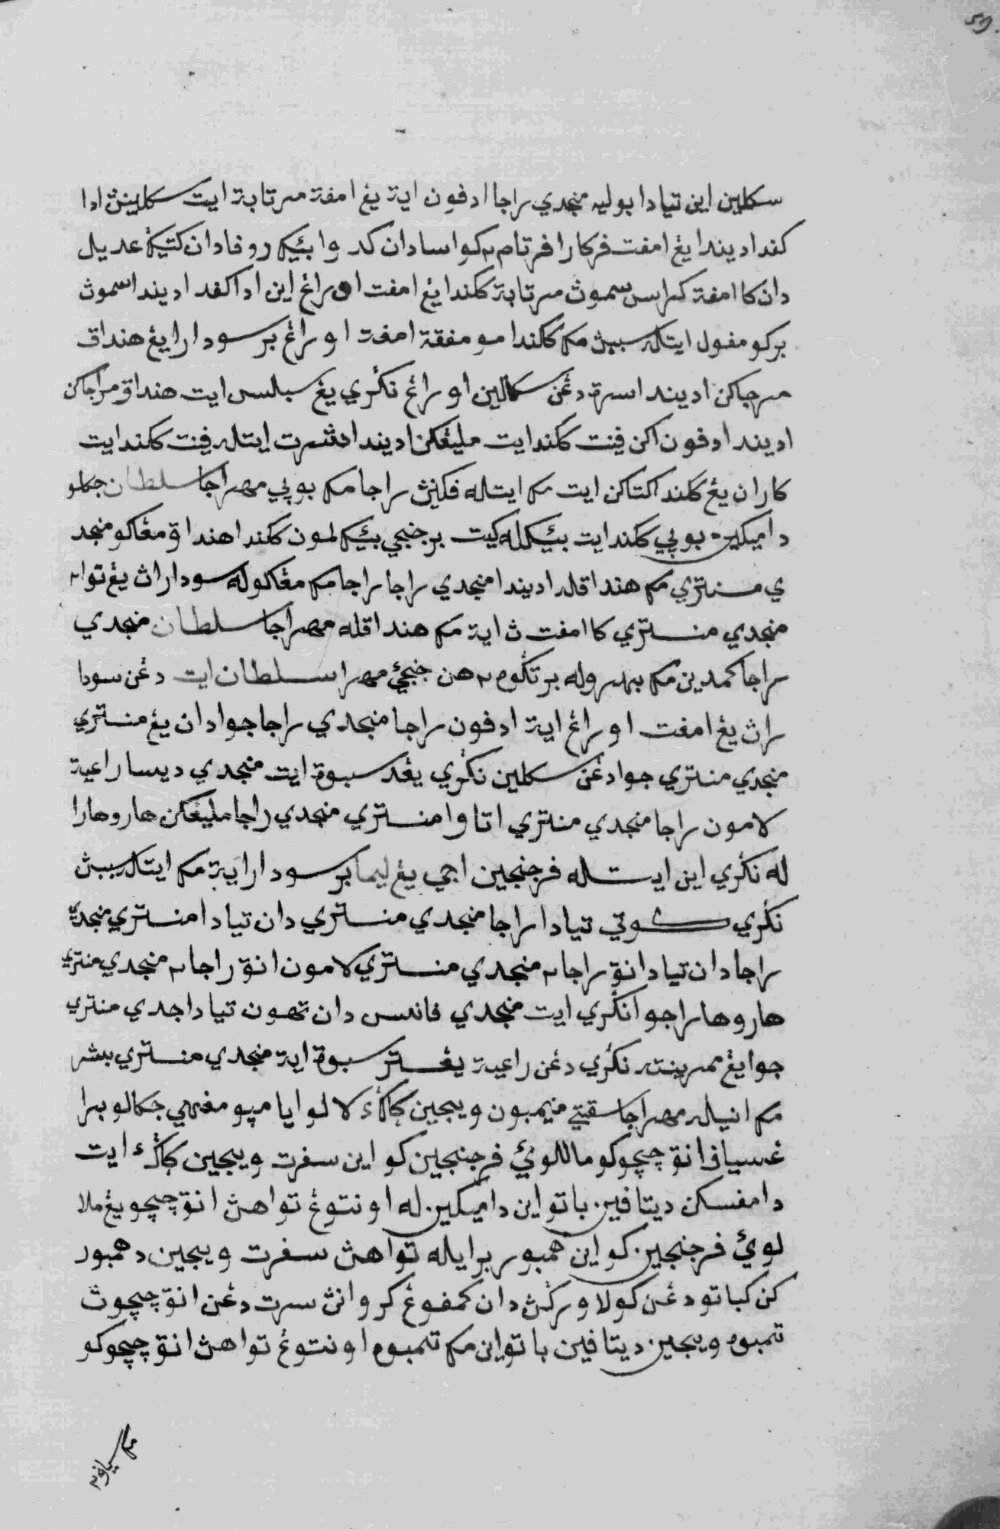 سكلين اين تيادا بوليه منجدي راجا ادفون ايت يڠ امفت مرتابة ايت سكلينڽ ادا
كفد اديندا يڠ امفت فركارا فرتام٢ كواسا دان كدوا بئيك روفا دان كتيݢ عديل
دان كاامفت كراس سموڽ مرتابة ككندا يڠ امفت اورڠ اين ادا كفد اديندا سموڽ
بركومفول ايتله سببڽ مك ككندا موفقة امفت اورڠ برسودارا يڠ هندق
مرجاكن اديندا سرت دڠن سكالين اورڠ نݢري يڠ سبلس ايت هندق مراجاكن
اديندا ادفون اكن فينت ككندا ايت مليڠكن اديندا دڠرت ايتله فينت ككندا ايت
كارن يڠ ككندا كتاكن ايت مك ايتله فكينڽ راجا مك بوڽي مهراجا سلطان جكلو
دميكين بوڽي ككندا ايت بئيكله كيت برجنجي بئيك لمون ككندا هندق مڠاكو منجد
ي منتري مك هندقله اديندا منجدي راجا راجا مك مڠاكوله سودارڽ يڠ توا٢
منجدي منتري كاامفتڽ ايت مك هندقله مهراجا سلطان منجدي
راجا كمدين مك بهروله برتݢوه٢هن جنجي مهرا سلطان ايت دڠن سودا
راڽ يڠ امفت اورڠ ايت ادفون راجا منجدي راجا جوا دان يڠ منتري
منجدي منتري جوا دڠن سكلين نݢري يڠد سبوة ايت منجدي ديسا راعية
لامون راجا منجدي منتري اتاوا منتري منجدي راجا مليڠكن هارو هارا
له نݢري اين ايتله فرجنجين اجي يڠ ليما برسودارا ايت مك ايتله سببڽ
نݢري سواتو تيادا راجا منجدي منتري دان تيادا منتري منجدي
راجا دان تيادا انق راجا٢ منجدي منتري لامون انق راجا٢ منجدي منتري
هارو هارا جوا نݢري ايت منجدي فانس دان تهون تيادا جدي منتري
جوا يڠ ممرينته نݢري دڠن راعية يڠ ترسبوة ايت منجدي منتري بسر
مك انيله مهراجا سقتي منيمبون ويجين كاكݢ لالو ايا ممڤو مڠمبي جكالو برا
ڠسياف انق چچوكو مالالوئي فرجنجين كو اين سفرت ويجين كاكݢ ايت
دامفسكن ديتافين باتو اين دميكينله اونتوڠ تواهڽ انق چچو يڠ ملا
لوئي فرجنجين كو اين همبور برايله تواهڽ سفرت ويجين دهمبور
كن كباتو دڠن كولاورݢڽ دان كمفوڠ كروانڽ سرت دڠن انق چچوڽ
تمبوه ويجين ديتافين باتو اين مك تمبوه اونتوڠ تواهڽ انق چچوكو
مك سياف٢